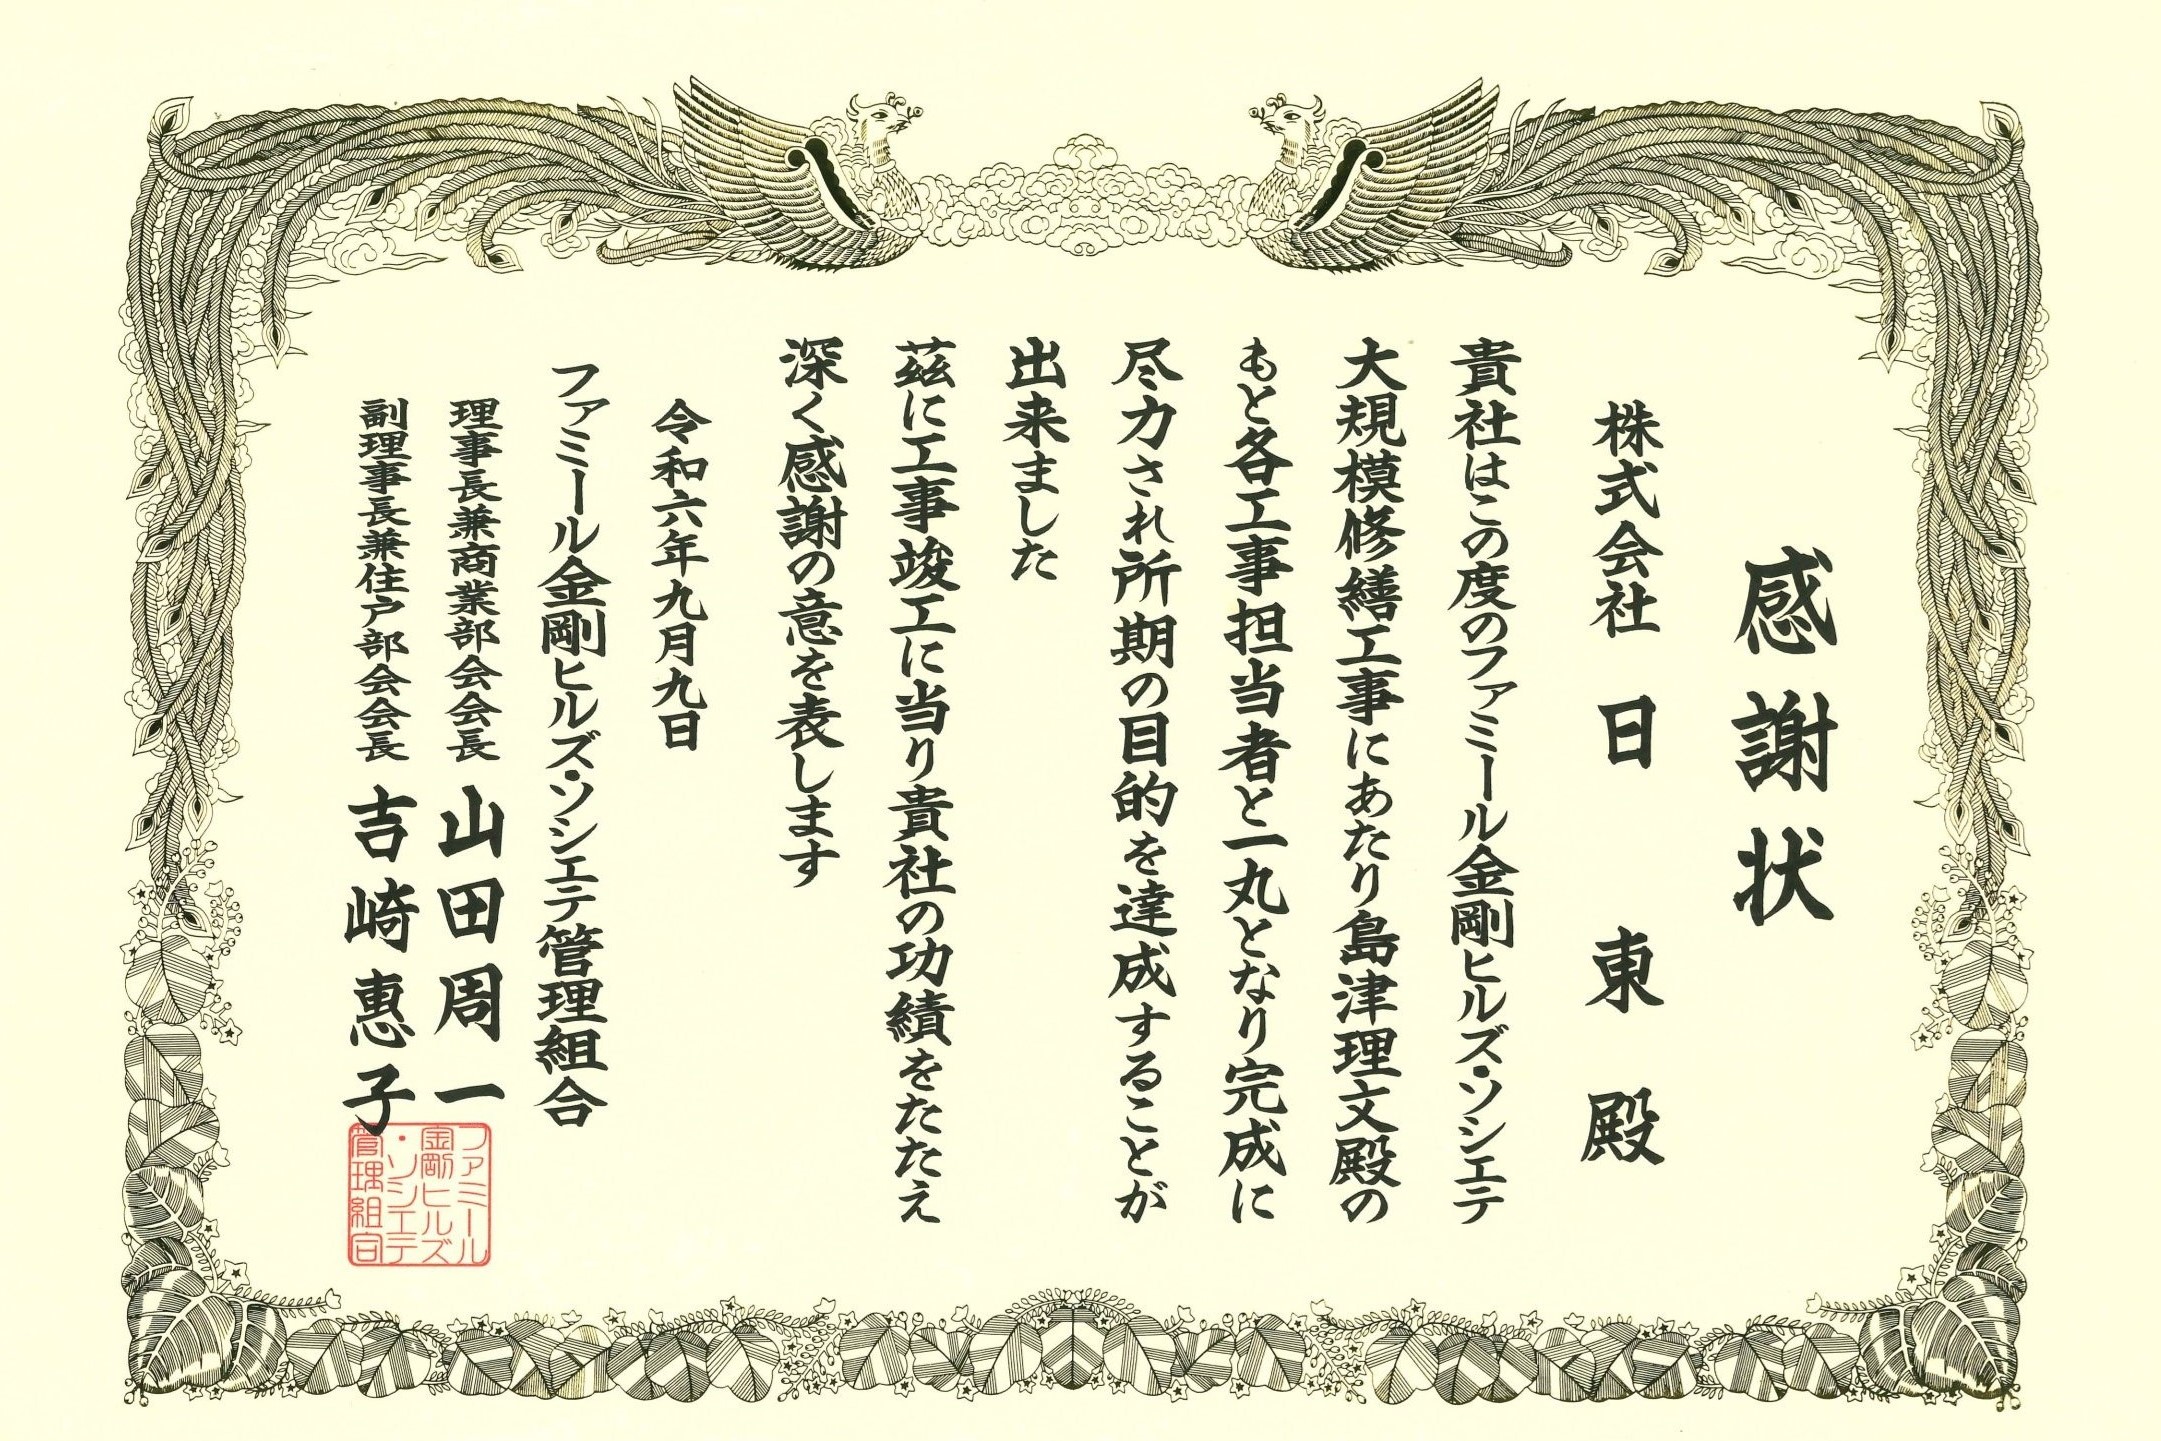 感謝状
株式会社 日東 殿
貴社はこの度のファミール金剛ヒルズ・ソシエテ
大規模修繕工事にあたり島津理文殿の
もと各工事担当者と一丸となり完成に
尽力され所期の目的を達成することが
出来ました
茲に工事竣工に当り貴社の功績をたたえ
深く感謝の意を表します
令和六年九月九日
ファミール金剛ヒルズ・ソシエテ管理組合
理事長兼商業部会会長 山田周一
副理事長兼住戸部会会長 吉崎惠子
ファミール
金剛ヒルズ
・ソシエテ
管理組合